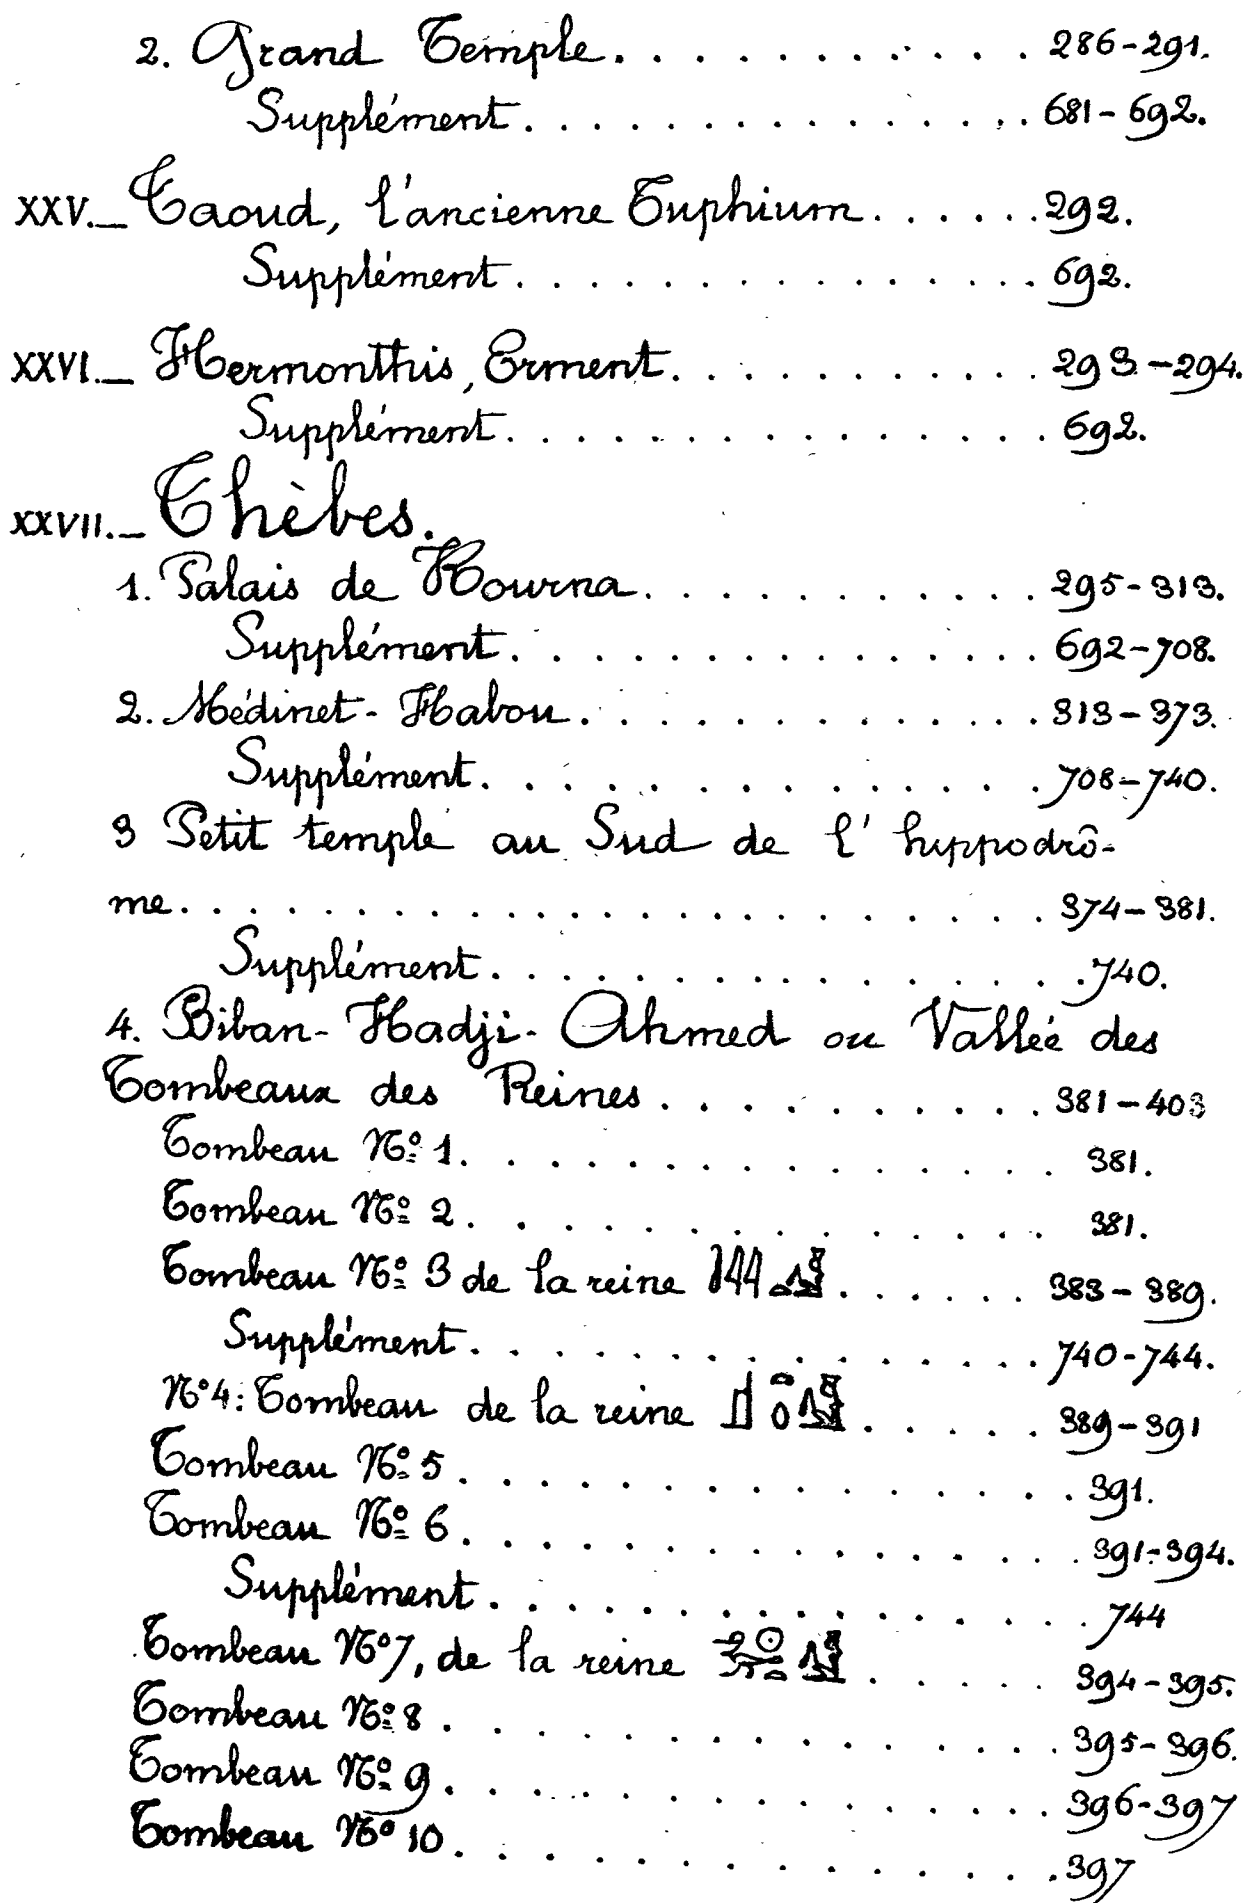 2. Grand Temple. . . . . . . . . . . . 286-291.
Supplément. . . . . . . . . . . . . . . 681-692.
XXV._ Taoud, l'ancienne Tuphium. . . . . . 292.
Supplément. . . . . . . . . . . . . . . 692.
XXVI._ Hermonthis, Erment. . . . . . . . . . . 293-294.
Supplément. . . . . . . . . . . . . . . 692.
XXVII._ Thèbes.
1. Palais de Kourna. . . . . . . . . . . . 295-313.
Supplément. . . . . . . . . . . . . . . 692-708.
2. Médinet-Habou. . . . . . . . . . . . . 313-373.
Supplément. . . . . . . . . . . . . . . 708-740.
3 Petit temple au Sud de l'hippodrô-
me. . . . . . . . . . . . . . . . . . . 374-381.
Supplément. . . . . . . . . . . . . . . 740.
4. Biban-Hadji-Ahmed ou Vallée des
Tombeaux des Reines. . . . . . . . . . . 381-403
Tombeau Nº 1. . . . . . . . . . . . . . . 381.
Tombeau Nº 2. . . . . . . . . . . . . . . 381.
Tombeau Nº 3 de la reine . . . . . . 383-389.
Supplément. . . . . . . . . . . . . . . 740-744.
N° 4: Tombeau de la reine . . . . . . 389-391
Tombeau Nº 5. . . . . . . . . . . . . . . 391.
Tombeau Nº 6. . . . . . . . . . . . . . . 391-394.
Supplément. . . . . . . . . . . . . . . 744
Tombeau N° 7, de la reine . . . . . . 394-395.
Tombeau Nº 8. . . . . . . . . . . . . . . 395-396.
Tombeau Nº 9. . . . . . . . . . . . . . . 396-397
Tombeau N° 10. . . . . . . . . . . . . . . 397